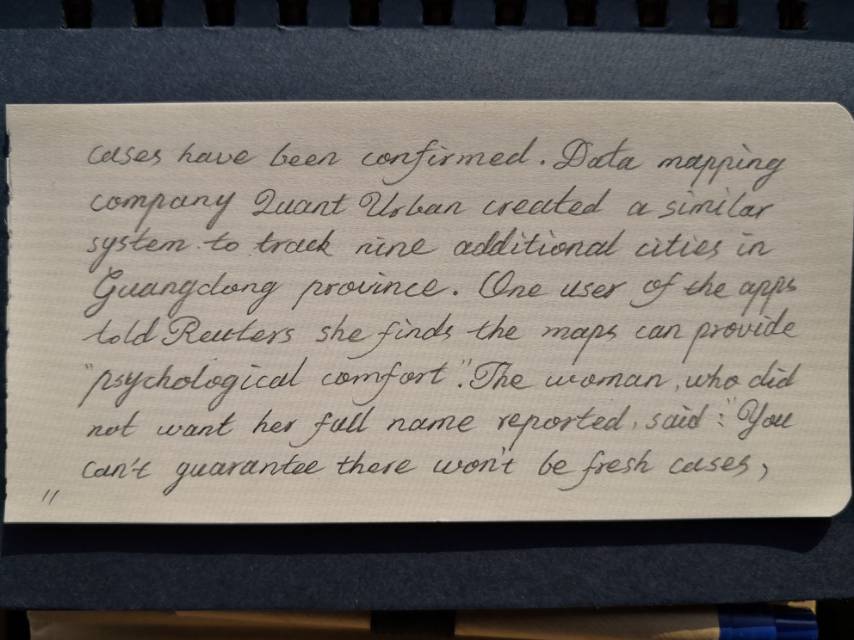 cases have been confirmed. Data mapping
company Quant Urban created a similar
system to track nine additional cities in
Guangdong province. One user of the apps
told Reuters she finds the maps can provide
"psychological comfort". The woman, who did
not want her full name reported, said: "You
can't guarantee there won't be fresh cases,
11